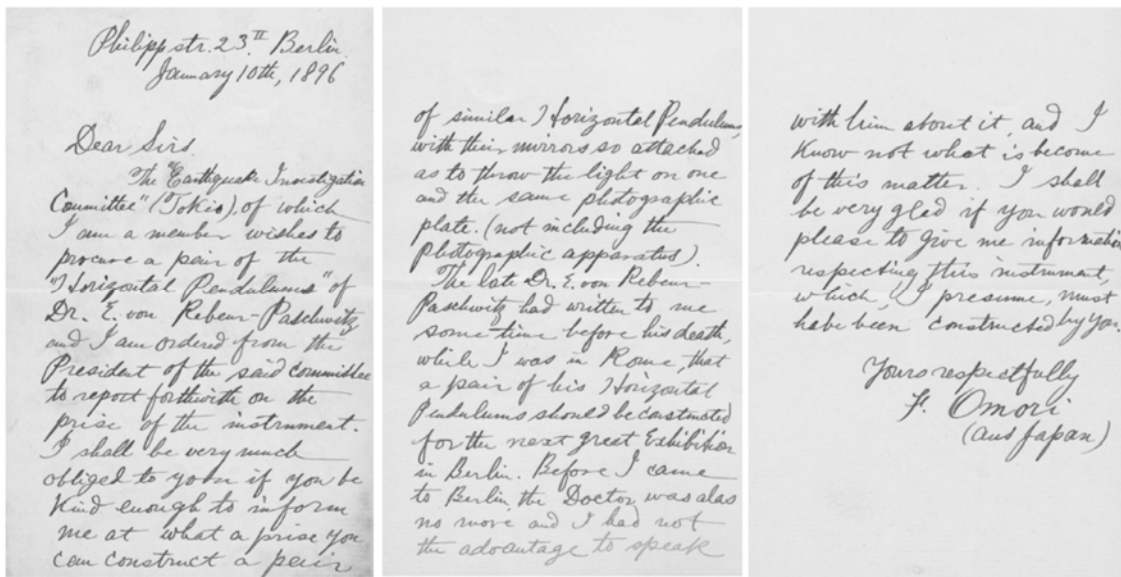 Philippstr. 23.II Berlin.
January 10th, 1896
Dear Sirs
The "Earthquake Investigation
Committee" (Tokio), of which
I am a member wishes to
procure a pair of the
"Horizontal Pendulums" of
Dr. E. von Rebeur-Paschwitz
and I am ordered from the
President of the said committee
to report forthwith on the
prise of the instrument.
I shall be very much
obliged to you if you be
kind enough to inform
me at what a prise you
can construct a pair
of similar Horizontal Pendulums,
with their mirrors so attached
as to throw the light on one
and the same photographic
plate. (not including the
photographic apparatus).
The late Dr. E. von Rebeur-
Paschwitz had written to me
some time before his death,
while I was in Rome, that
a pair of his Horizontal
Pendulums should be constructed
for the next great Exhibition
in Berlin. Before I came
to Berlin, the Doctor was alas
no more and I had not
the advantage to speak
with him about it, and I
know not what is become
of this matter. I shall
be very glad if you would
please to give me information
respecting this instrument,
which, I presume, must
have been constructed by you.
Yours respectfully
F. Omori
(aus Japan)